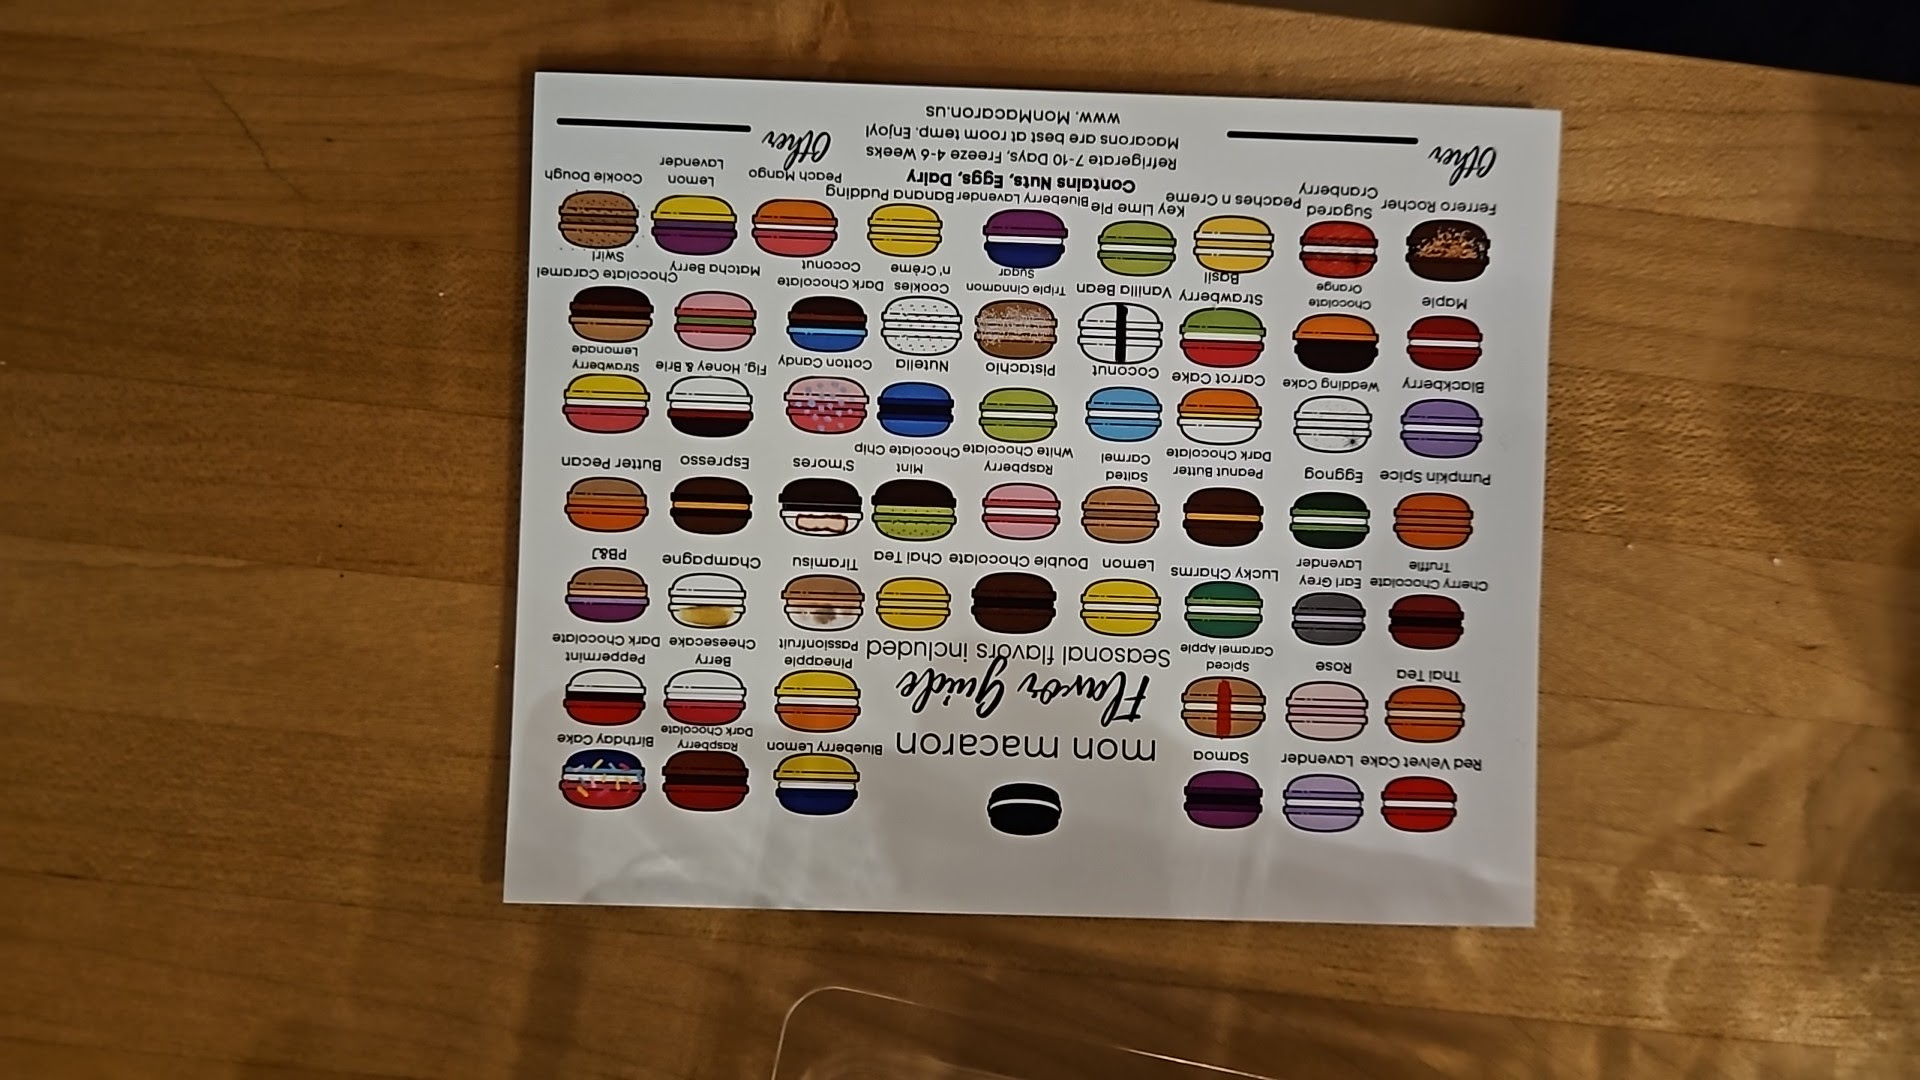 mon macaron
Flavor Guide
Seasonal flavors included
Red Velvet Cake
Lavender
Samoa
Blueberry Lemon
Raspberry
Dark Chocolate
Birthday Cake
Thai Tea
Rose
Spiced
Caramel Apple
Pineapple
Passionfruit
Berry
Cheesecake
Peppermint
Dark Chocolate
Cherry Chocolate
Truffle
Earl Grey
Lavender
Lucky Charms
Lemon
Double Chocolate
Chai Tea
Tiramisu
Champagne
PB&J
Pumpkin Spice
Eggnog
Peanut Butter
Dark Chocolate
Salted
Carmel
Raspberry
White Chocolate
Mint
Chocolate Chip
S'mores
Espresso
Butter Pecan
Blackberry
Wedding Cake
Carrot Cake
Coconut
Pistachio
Nutella
Cotton Candy
Fig, Honey & Brie
Strawberry
Lemonade
Maple
Chocolate
Orange
Strawberry
Basil
Vanilla Bean
Triple Cinnamon
Sugar
Cookies
n' Crème
Dark Chocolate
Coconut
Matcha Berry
Chocolate Caramel
Swirl
Ferrero Rocher
Sugared
Cranberry
Peaches n Creme
Key Lime Pie
Blueberry Lavender
Banana Pudding
Peach Mango
Lemon
Lavender
Cookie Dough
Other
Contains Nuts, Eggs, Dairy
Refrigerate 7-10 Days, Freeze 4-6 Weeks
Macarons are best at room temp. Enjoy!
www. MonMacaron.us
Other